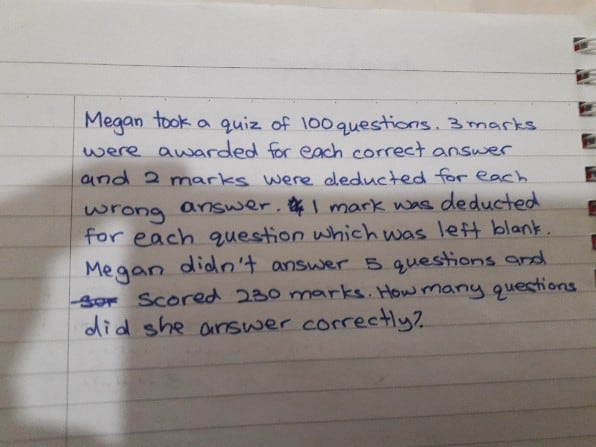 Megan took a quiz of 100 questions. 3 marks
were awarded for each correct answer
and 2 marks were deducted for each
wrong answer. 1 mark was deducted
for each question which was left blank.
Megan didn't answer 5 questions and
scored 230 marks. How many questions
did she answer correctly?